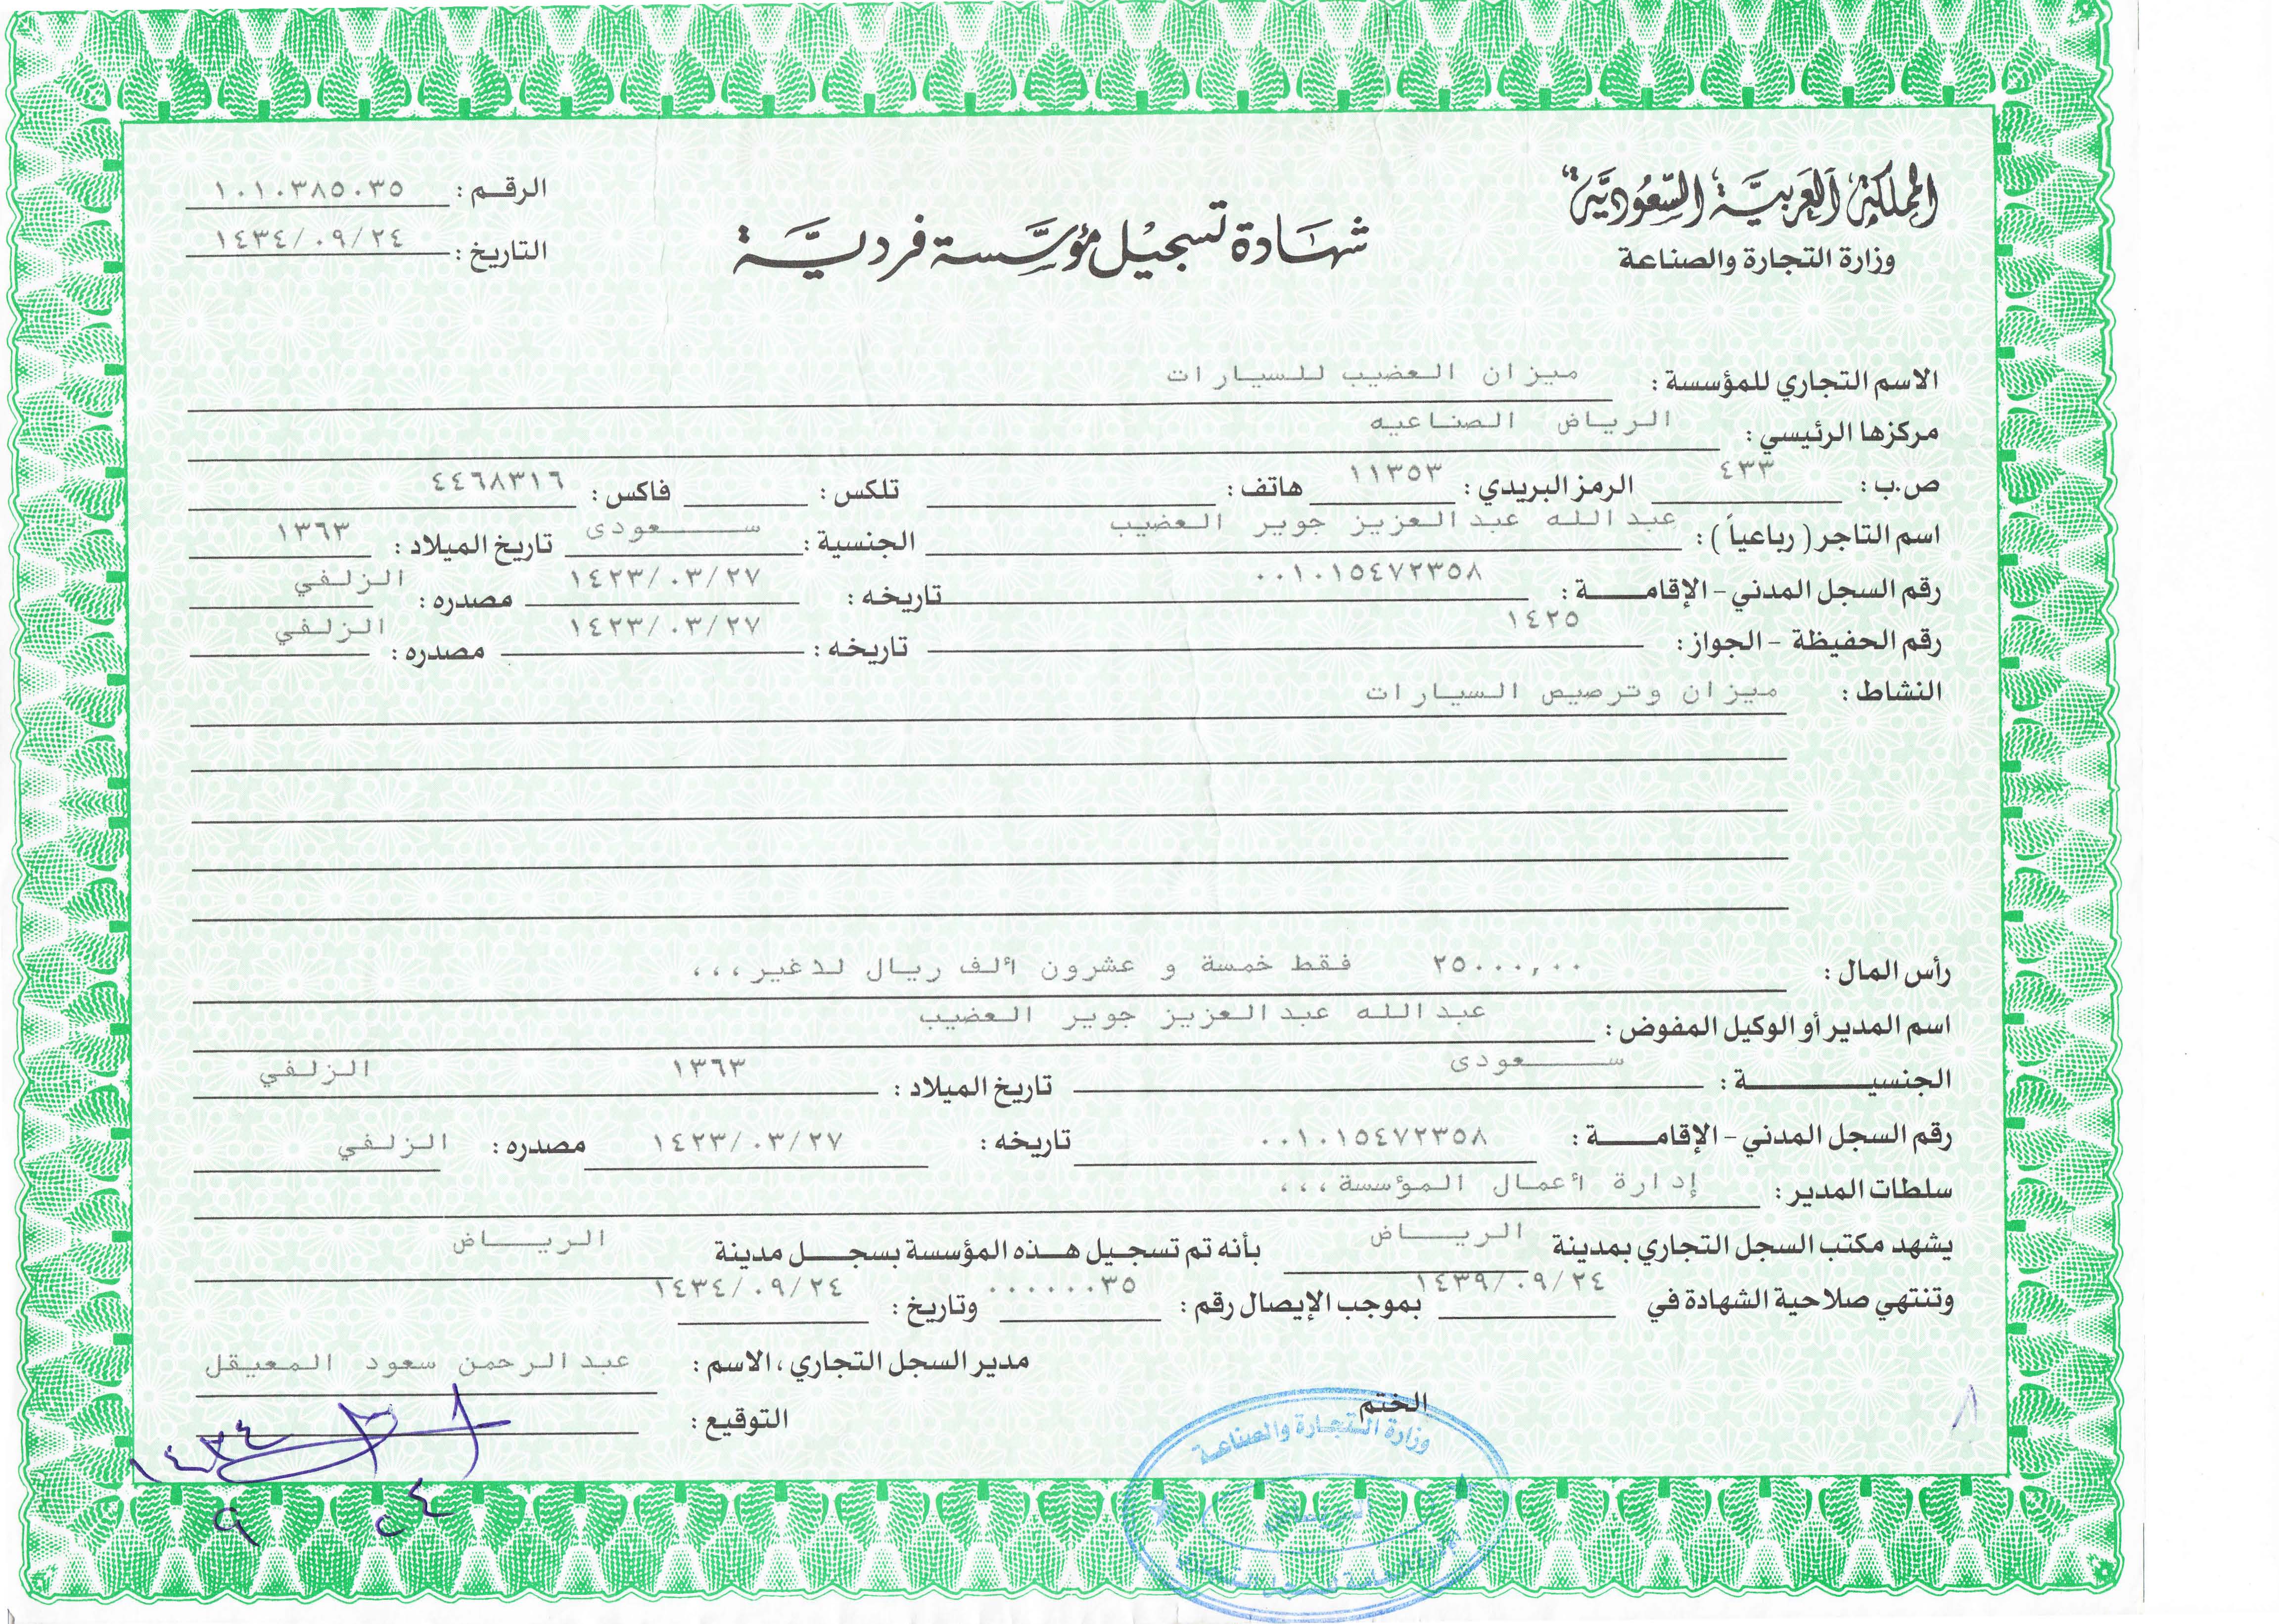 المملكة العربية السعودية
وزارة التجارة والصناعة
شهادة تسجيل مؤسسة فردية
الرقم : ١٠١٠٣٨٥٠٣٥
التاريخ : ١٤٣٤/٠٩/٢٤
الاسم التجاري للمؤسسة : ميزان العضيب للسيارات
مركزها الرئيسي : الرياض الصناعيه
ص.ب : ٤٣٣ الرمز البريدي : ١١٣٥٣ هاتف : تلكس : فاكس : ٤٤٦٨٣١٦
اسم التاجر ( رباعياً ) : عبدالله عبدالعزيز جوير العضيب الجنسية : سعودى تاريخ الميلاد : ١٣٦٣
رقم السجل المدني - الإقامة : ٠٠١٠١٥٤٧٢٣٥٨ تاريخه : ١٤٢٣/٠٣/٢٧ مصدره : الزلفي
رقم الحفيظة - الجواز : ١٤٢٥ تاريخه : ١٤٢٣/٠٣/٢٧ مصدره : الزلفي
النشاط : ميزان وترصيص السيارات
رأس المال : ٢٥٠٠٠,٠٠ فقط خمسة و عشرون ألف ريال لاغير،،،
اسم المدير أو الوكيل المفوض : عبدالله عبدالعزيز جوير العضيب
الجنسية : سعودى تاريخ الميلاد : ١٣٦٣ الزلفي
رقم السجل المدني - الإقامة : ٠٠١٠١٥٤٧٢٣٥٨ تاريخه : ١٤٢٣/٠٣/٢٧ مصدره : الزلفي
سلطات المدير : إدارة أعمال المؤسسة،،،
يشهد مكتب السجل التجاري بمدينة الرياض بأنه تم تسجيل هذه المؤسسة بسجل مدينة الرياض
وتنتهي صلاحية الشهادة في ١٤٣٩/٠٩/٢٤ بموجب الإيصال رقم : ٠٠٠٠٠٠٣٥ وتاريخ : ١٤٣٤/٠٩/٢٤
مدير السجل التجاري ، الاسم : عبدالرحمن سعود المعيقل
الختم
التوقيع :
وزارة التجارة والصناعة
الرياض
١٤٣٤
٩
٢٤